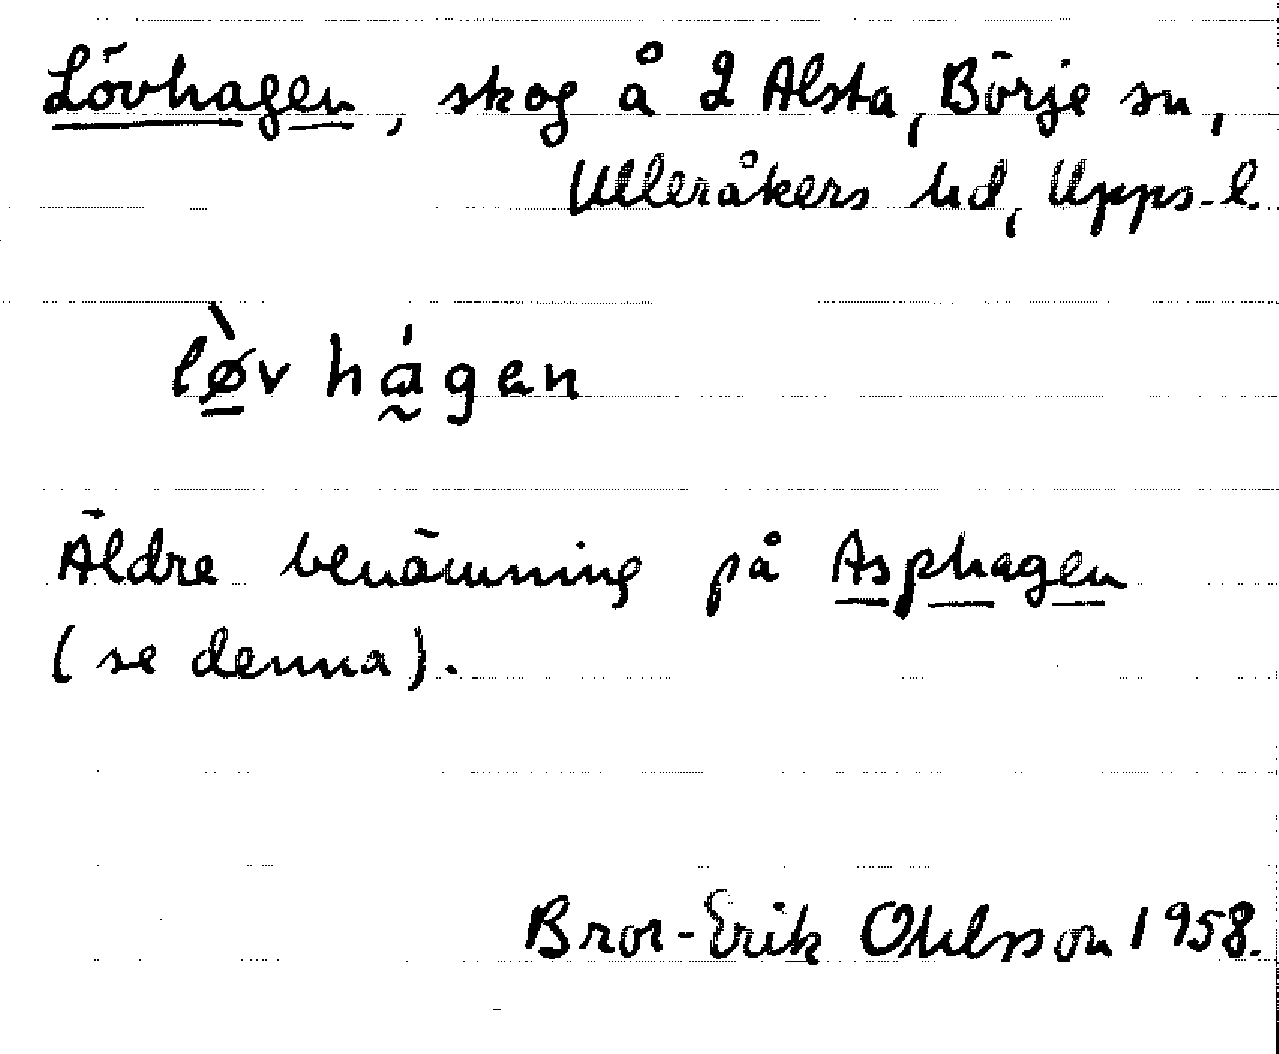 Lövhagen, skog å 2 Alsta, Börje sn,
Ulleråkers hd, Upps. l.
lø̱̀v há̰gen
Äldre benämning på Asphagen
(se denna).
Bror-Erik Ohlsson 1958.